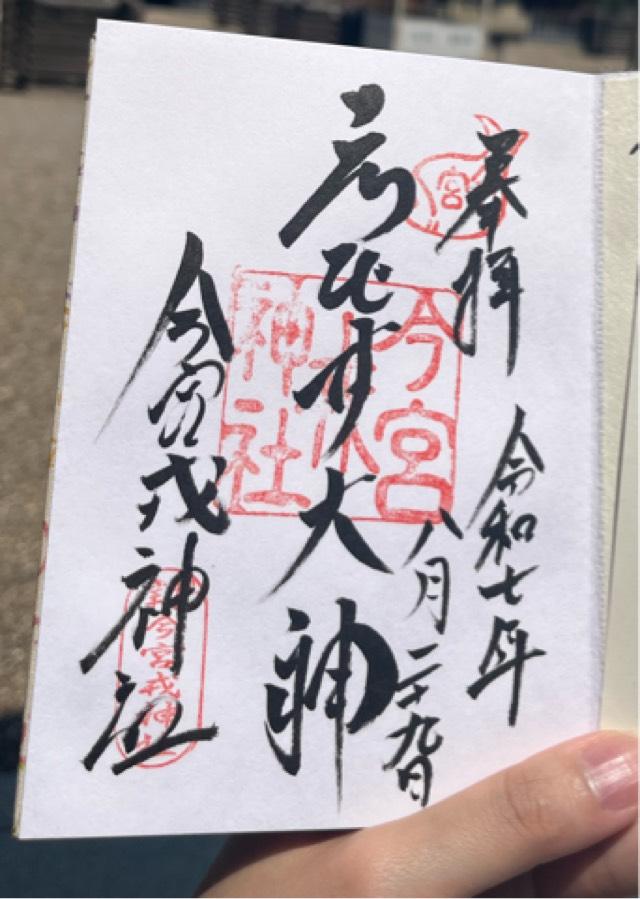 奉拝
令和七年
八月二十九日
ゑびす大神
今宮戎神社
宮
今宮
神社
今宮戎神社